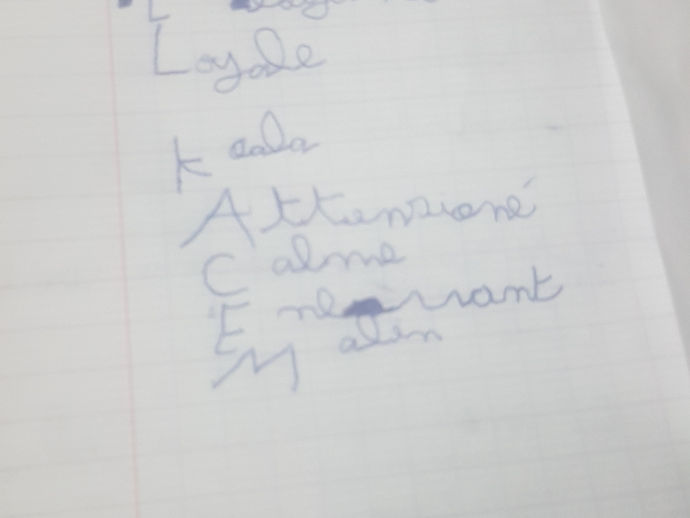 Loyale
Koala
Attensioné
Calme
Malin